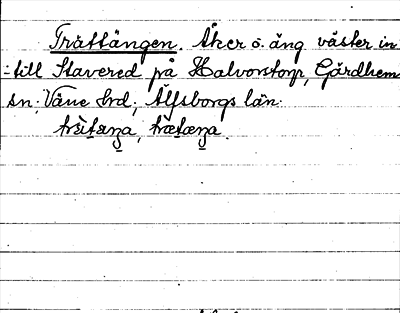 Trättängen. Åker o. äng väster in
-till Stavered på Halvorstorp, Gärdhem
sn; Väne hrd; Älfsborgs län.